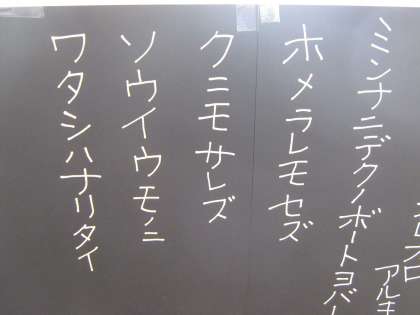 アルキ
ミンナニデクノボートヨバ
ホメラレモセズ
クニモサレズ
ソウイウモノニ
ワタシハナリタイ